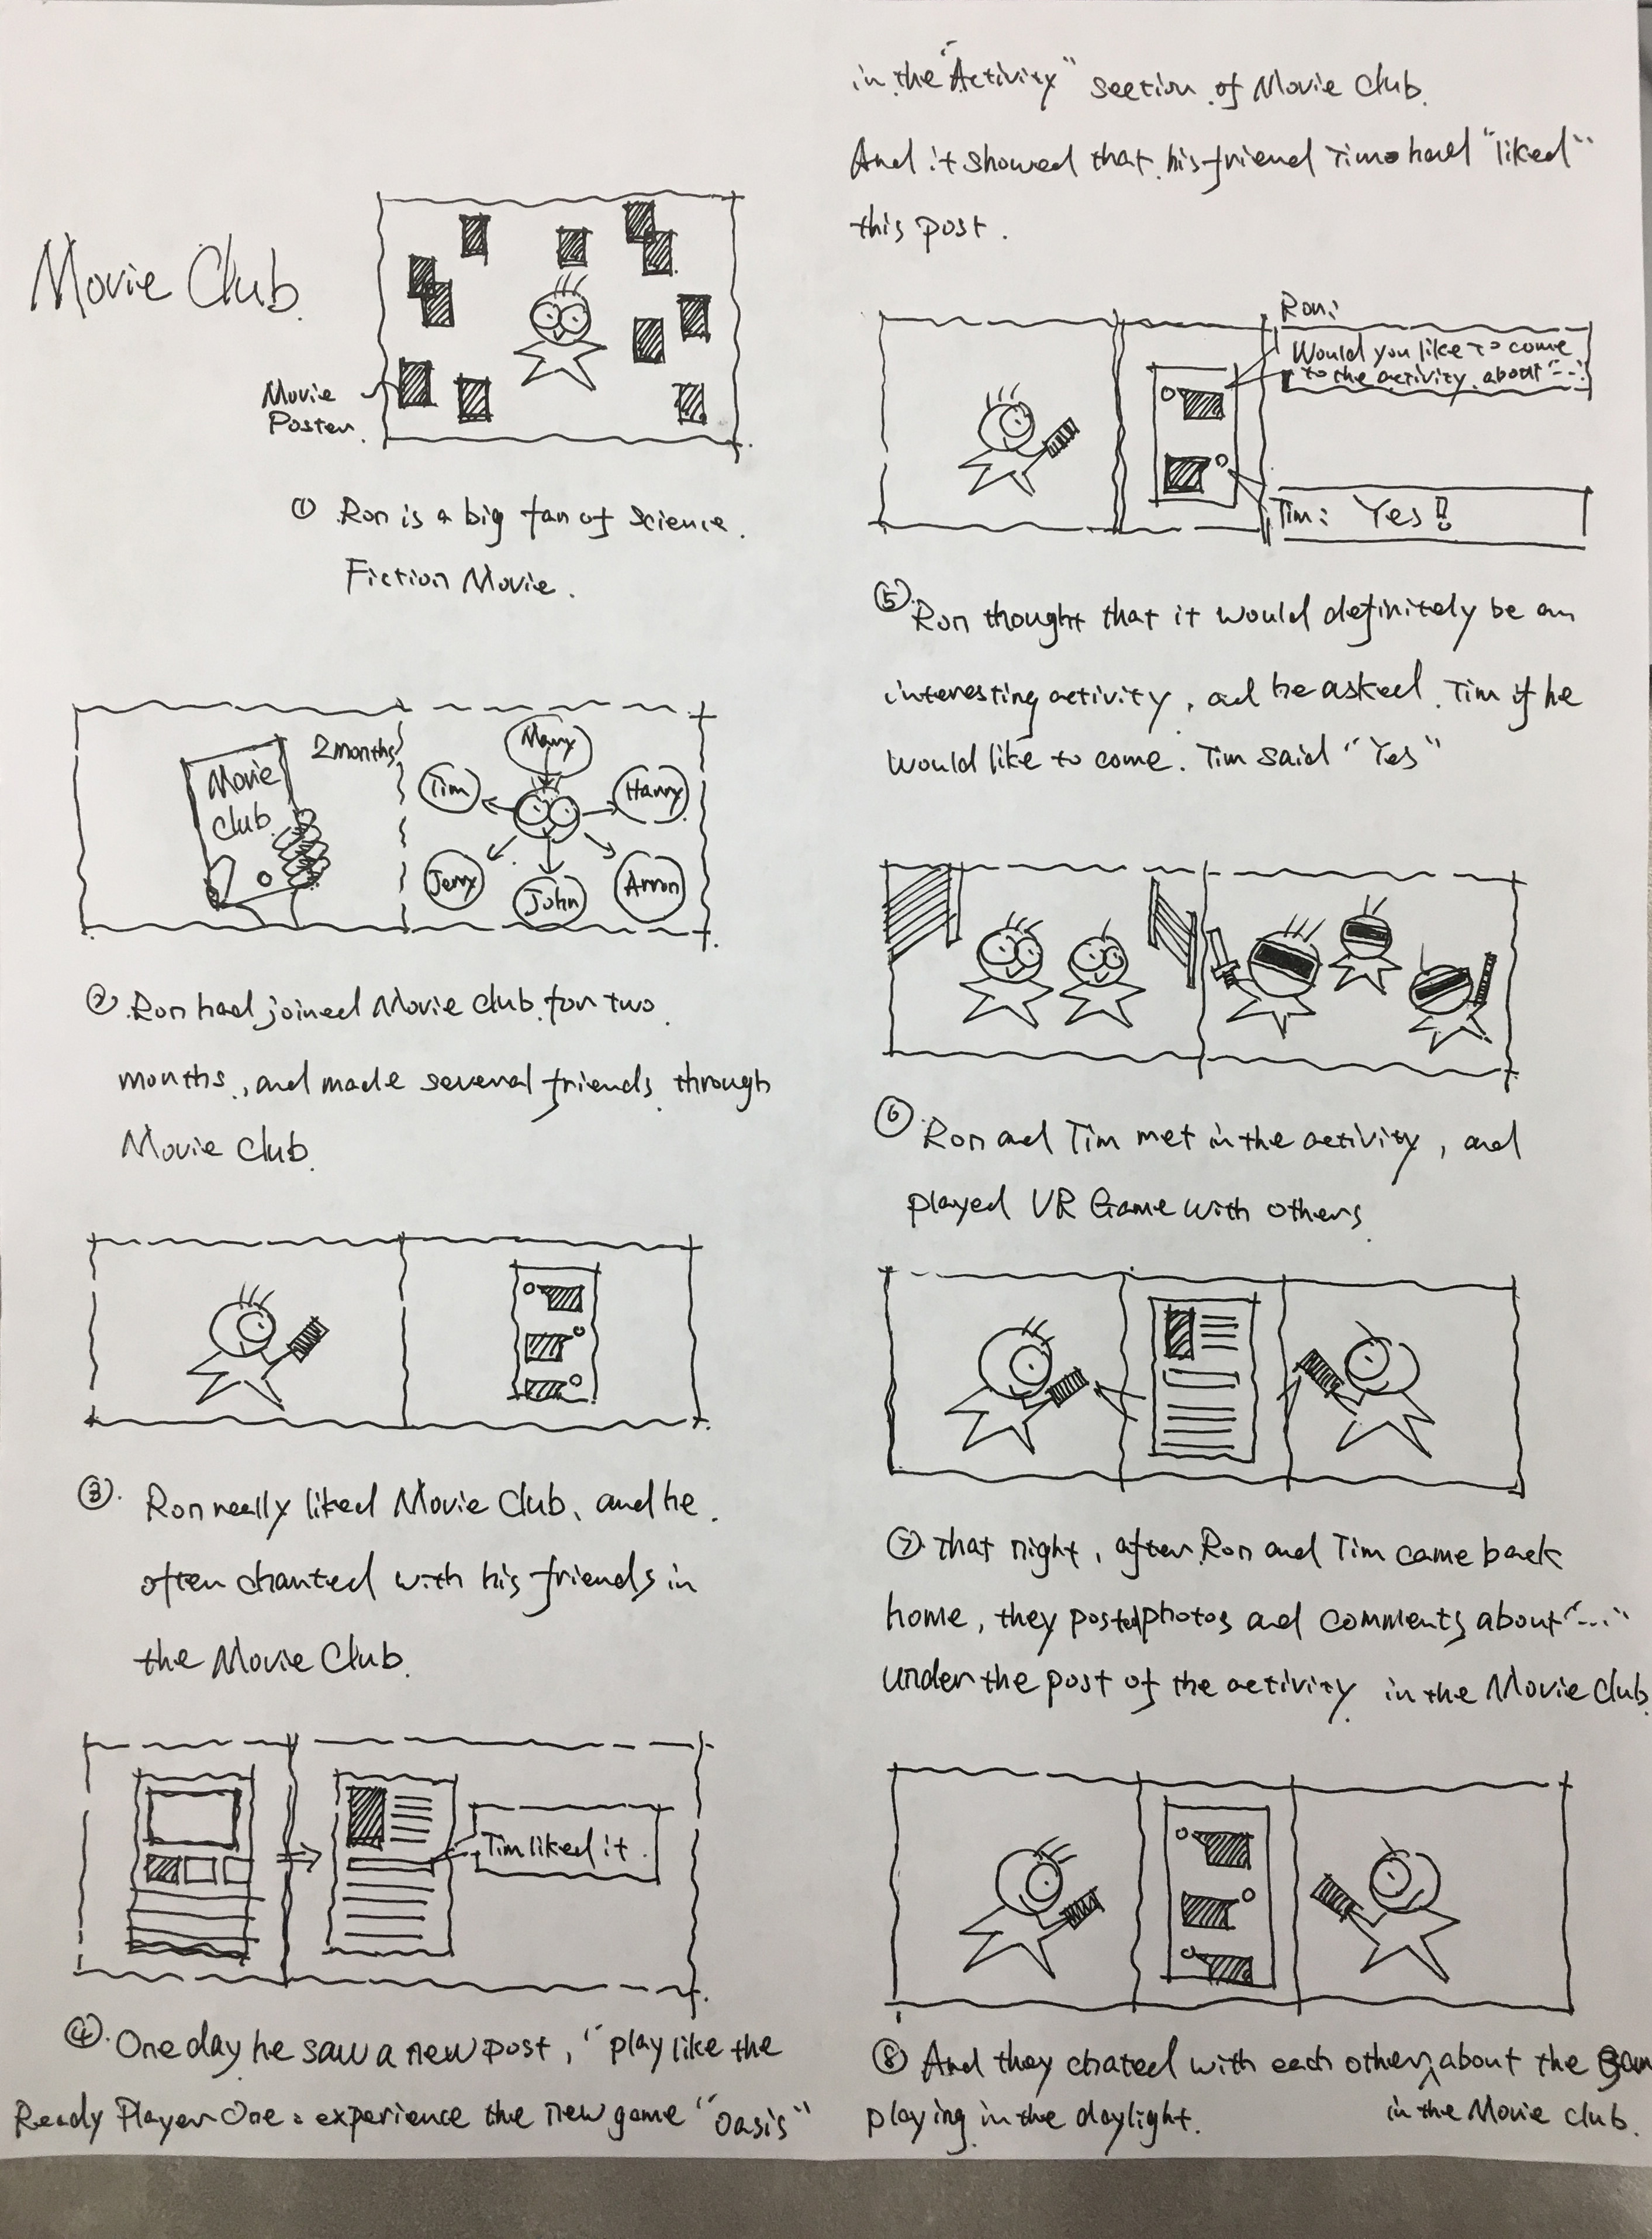 Movie Club.
Movie
Poster.
① Ron is a big fan of science
Fiction Movie.
Movie
Club
2 months
Mary
Tim
Harry
Jerry
John
Arron
② Ron had joined Movie Club for two
months, and made several friends through
Movie Club.
③ Ron really liked Movie Club, and he
often chanted with his friends in
the Movie Club.
Tim liked it.
④ One day he saw a new post, "play like the
Ready Player One: experience the new game "Oasis"
in the "Activity" section of Movie Club.
And it showed that his friend Tim had "liked"
this post.
Ron:
Would you like to come
to the activity about "..."
Tim: Yes!!
⑤ Ron thought that it would definitely be an
interesting activity, and he asked Tim if he
would like to come. Tim said "Yes"
⑥ Ron and Tim met in the activity, and
played VR Game with others.
⑦ That night, after Ron and Tim came back
home, they posted photos and comments about "..."
under the post of the activity in the Movie Club.
⑧ And they chated with each other, about the
in the Movie Club.
playing in the daylight.